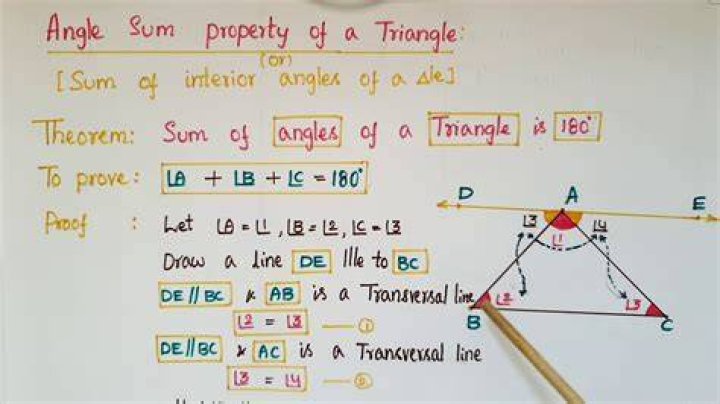 Angle Sum property of a Triangle:
(or)
[Sum of interior angles of a Δle]
Theorem: Sum of angles of a Triangle is 180°
To prove: ∠A + ∠B + ∠C = 180°
Proof : Let ∠A = ∠1, ∠B = ∠2, ∠C = ∠3
Draw a line DE llle to BC
DE // BC & AB is a Transversal line
∠2 = ∠3 — ①
DE // BC & AC is a Transversal line
∠3 = ∠4 — ②
D A E
∠3 ∠1 ∠4
∠2 ∠3
B C